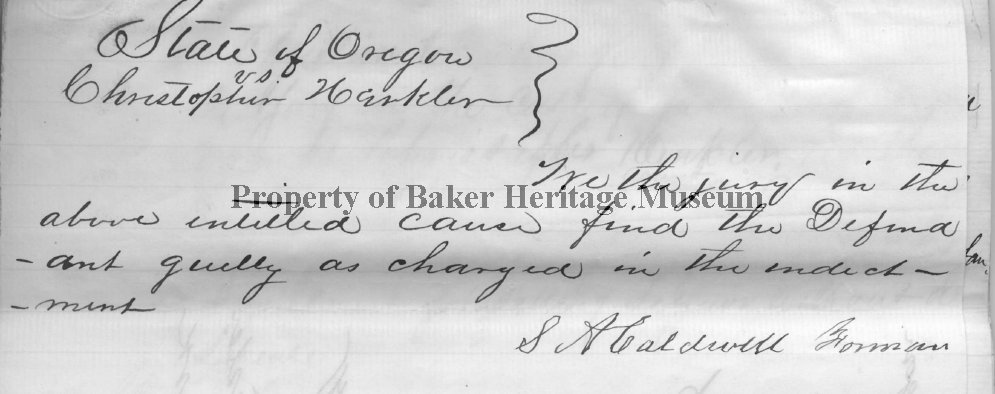 State of Oregon
vs.
Christopher Hankler
We the jury in the
Property of Baker Heritage Museum
above entitled cause find the Defend
-ant guilty as charged in the indect-
-ment
S A Caldwell Forman